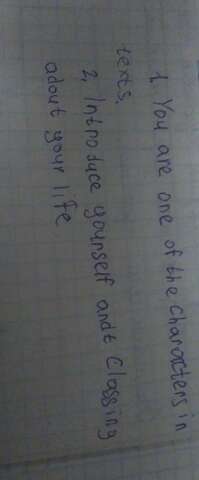 1. You are one of the characters in
texts.
2, Introduce yourself andt Classing
adout your life